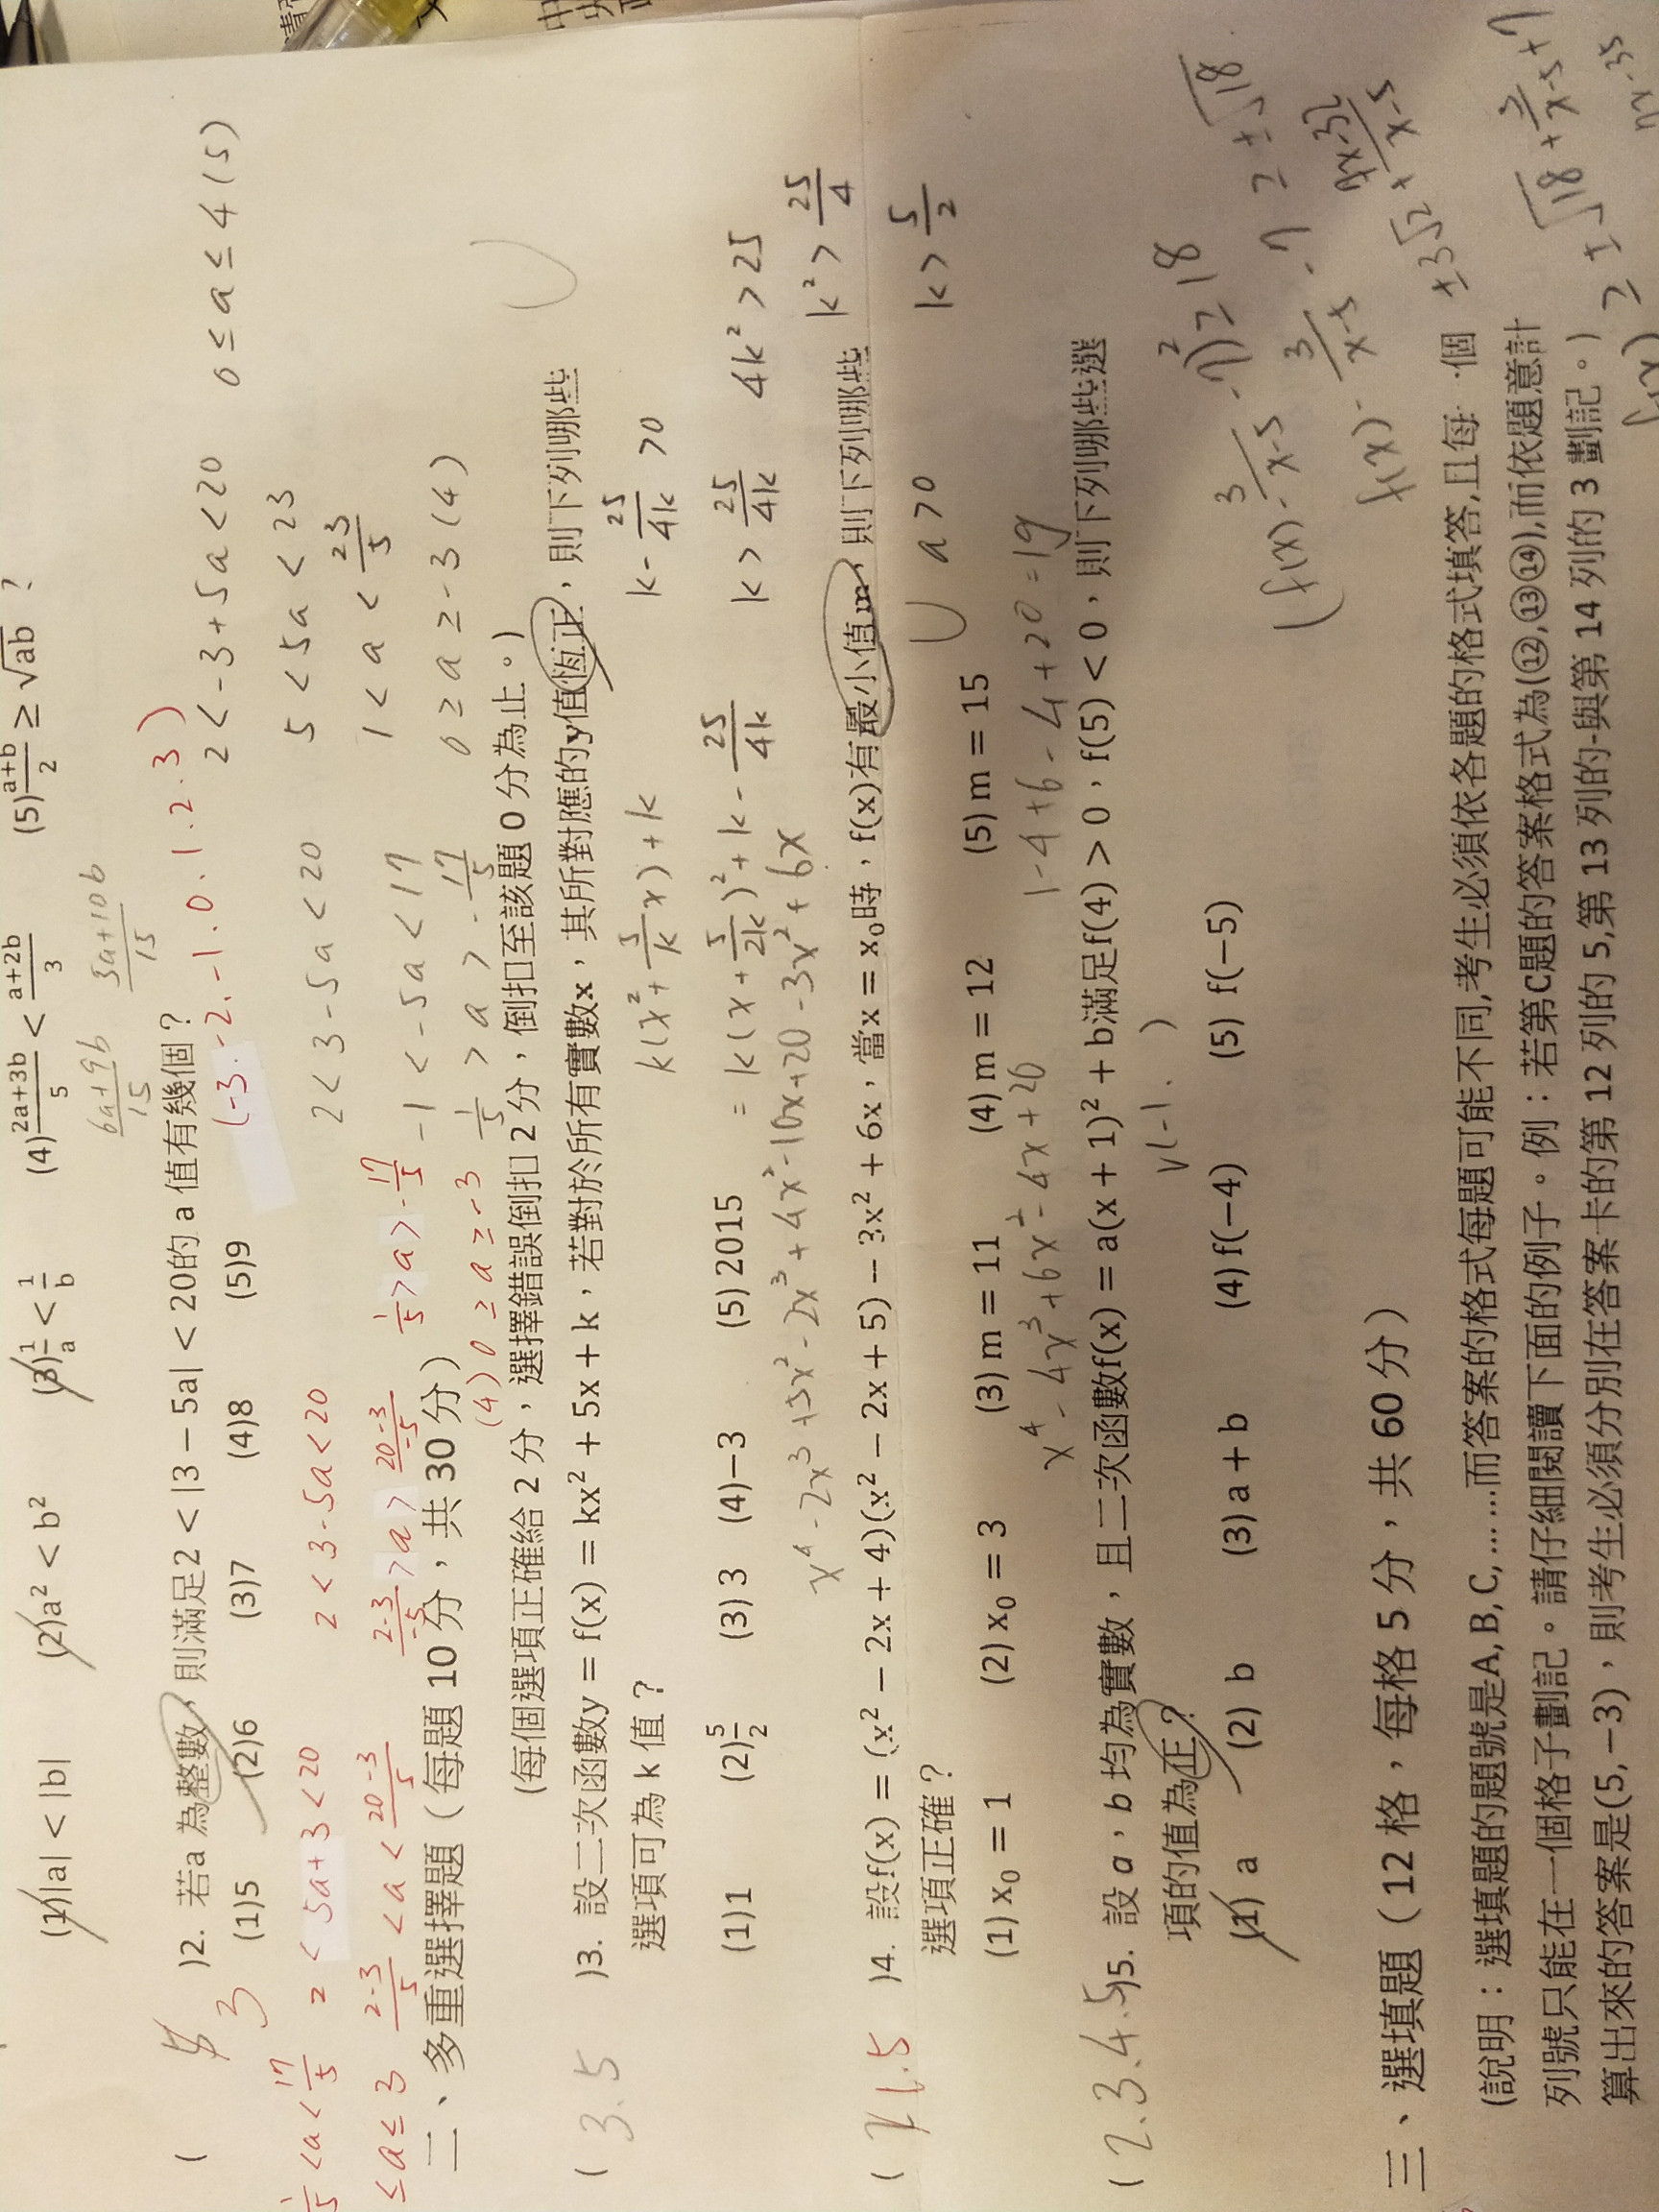 (1)|a| < |b| (2)a² < b² (3)1/a < 1/b (4)(2a+3b)/5 < (a+2b)/3 (5)(a+b)/2 ≥ √ab ?
(6a+9b)/15 (3a+10b)/15
( 3 )2. 若a 為整數,則滿足2 < |3 − 5a| < 20的 a 值有幾個?
(1)5 (2)6 (3)7 (4)8 (5)9
(-3.-2.-1.0.1.2.3)
2 < -3+5a < 20 0 ≤ a ≤ 4 (5)
5 < 5a < 23
1 < a < 23/5
2 < 5a+3 < 20 2 < 3-5a < 20
2 < 3-5a < 20
-1 < -5a < 17
1/5 > a > -17/5
0 ≥ a ≥ -3 (4)
(2-3)/5 < a < (20-3)/5 (2-3)/-5 > a > (20-3)/-5 1/5 > a > -17/5
≤ a ≤ 3 (4) 0 ≥ a ≥ -3
二、多重選擇題(每題 10 分,共 30 分)
(每個選項正確給 2 分,選擇錯誤倒扣 2 分,倒扣至該題 0 分為止。)
( 3.5 )3. 設二次函數y = f(x) = kx² + 5x + k,若對於所有實數x,其所對應的y值恆正,則下列哪些
選項可為 k 值?
k(x²+5/k x)+k k-25/4k >0
(1)1 (2)5/2 (3) 3 (4)−3 (5) 2015
= k(x+5/2k)²+k-25/4k k > 25/4k 4k² > 25
k² > 25/4
k > 5/2
x⁴-2x³+5x²-2x³+4x²-10x+20-3x²+6x
( 1.5 )4. 設f(x) = (x² − 2x + 4)(x² − 2x + 5) − 3x² + 6x,當x = x₀時,f(x)有最小值m,則下列哪些
選項正確?
(1) x₀ = 1 (2) x₀ = 3 (3) m = 11 (4) m = 12 (5) m = 15
a > 0
x⁴-4x³+6x²-4x+20 1-4+6-4+20=19
( 2.3.4.5 )5. 設 a,b 均為實數,且二次函數f(x) = a(x + 1)² + b滿足f(4) > 0,f(5) < 0,則下列哪些選
項的值為正?
v(-1. )
(1) a (2) b (3) a + b (4) f(−4) (5) f(−5)
三、選填題(12 格,每格 5 分,共 60 分)
(說明:選填題的題號是A, B, C, ... ...而答案的格式每題可能不同,考生必須依各題的格式填答,且每一個
列號只能在一個格子劃記。請仔細閱讀下面的例子。例:若第C題的答案格式為(⑫,⑬⑭),而依題意計
算出來的答案是(5, −3),則考生必須分別在答案卡的第 12 列的 5,第 13 列的-與第 14 列的 3 劃記。)